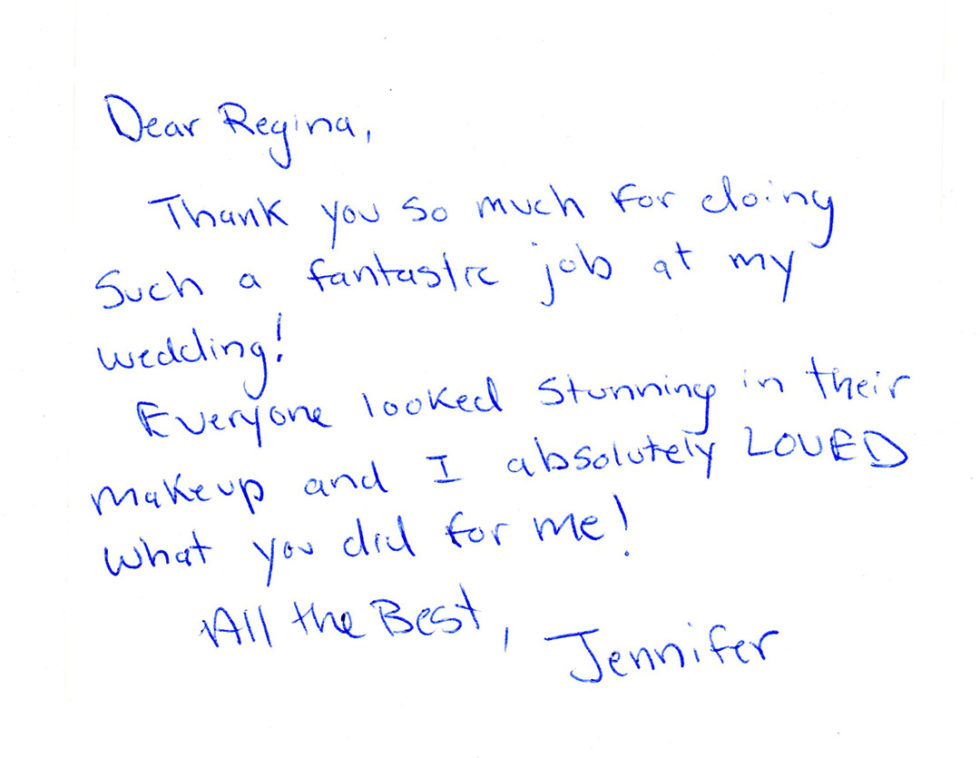 Dear Regina,
Thank you so much for doing
such a fantastic job at my
wedding!
Everyone looked stunning in their
makeup and I absolutely LOVED
what you did for me!
All the Best, Jennifer